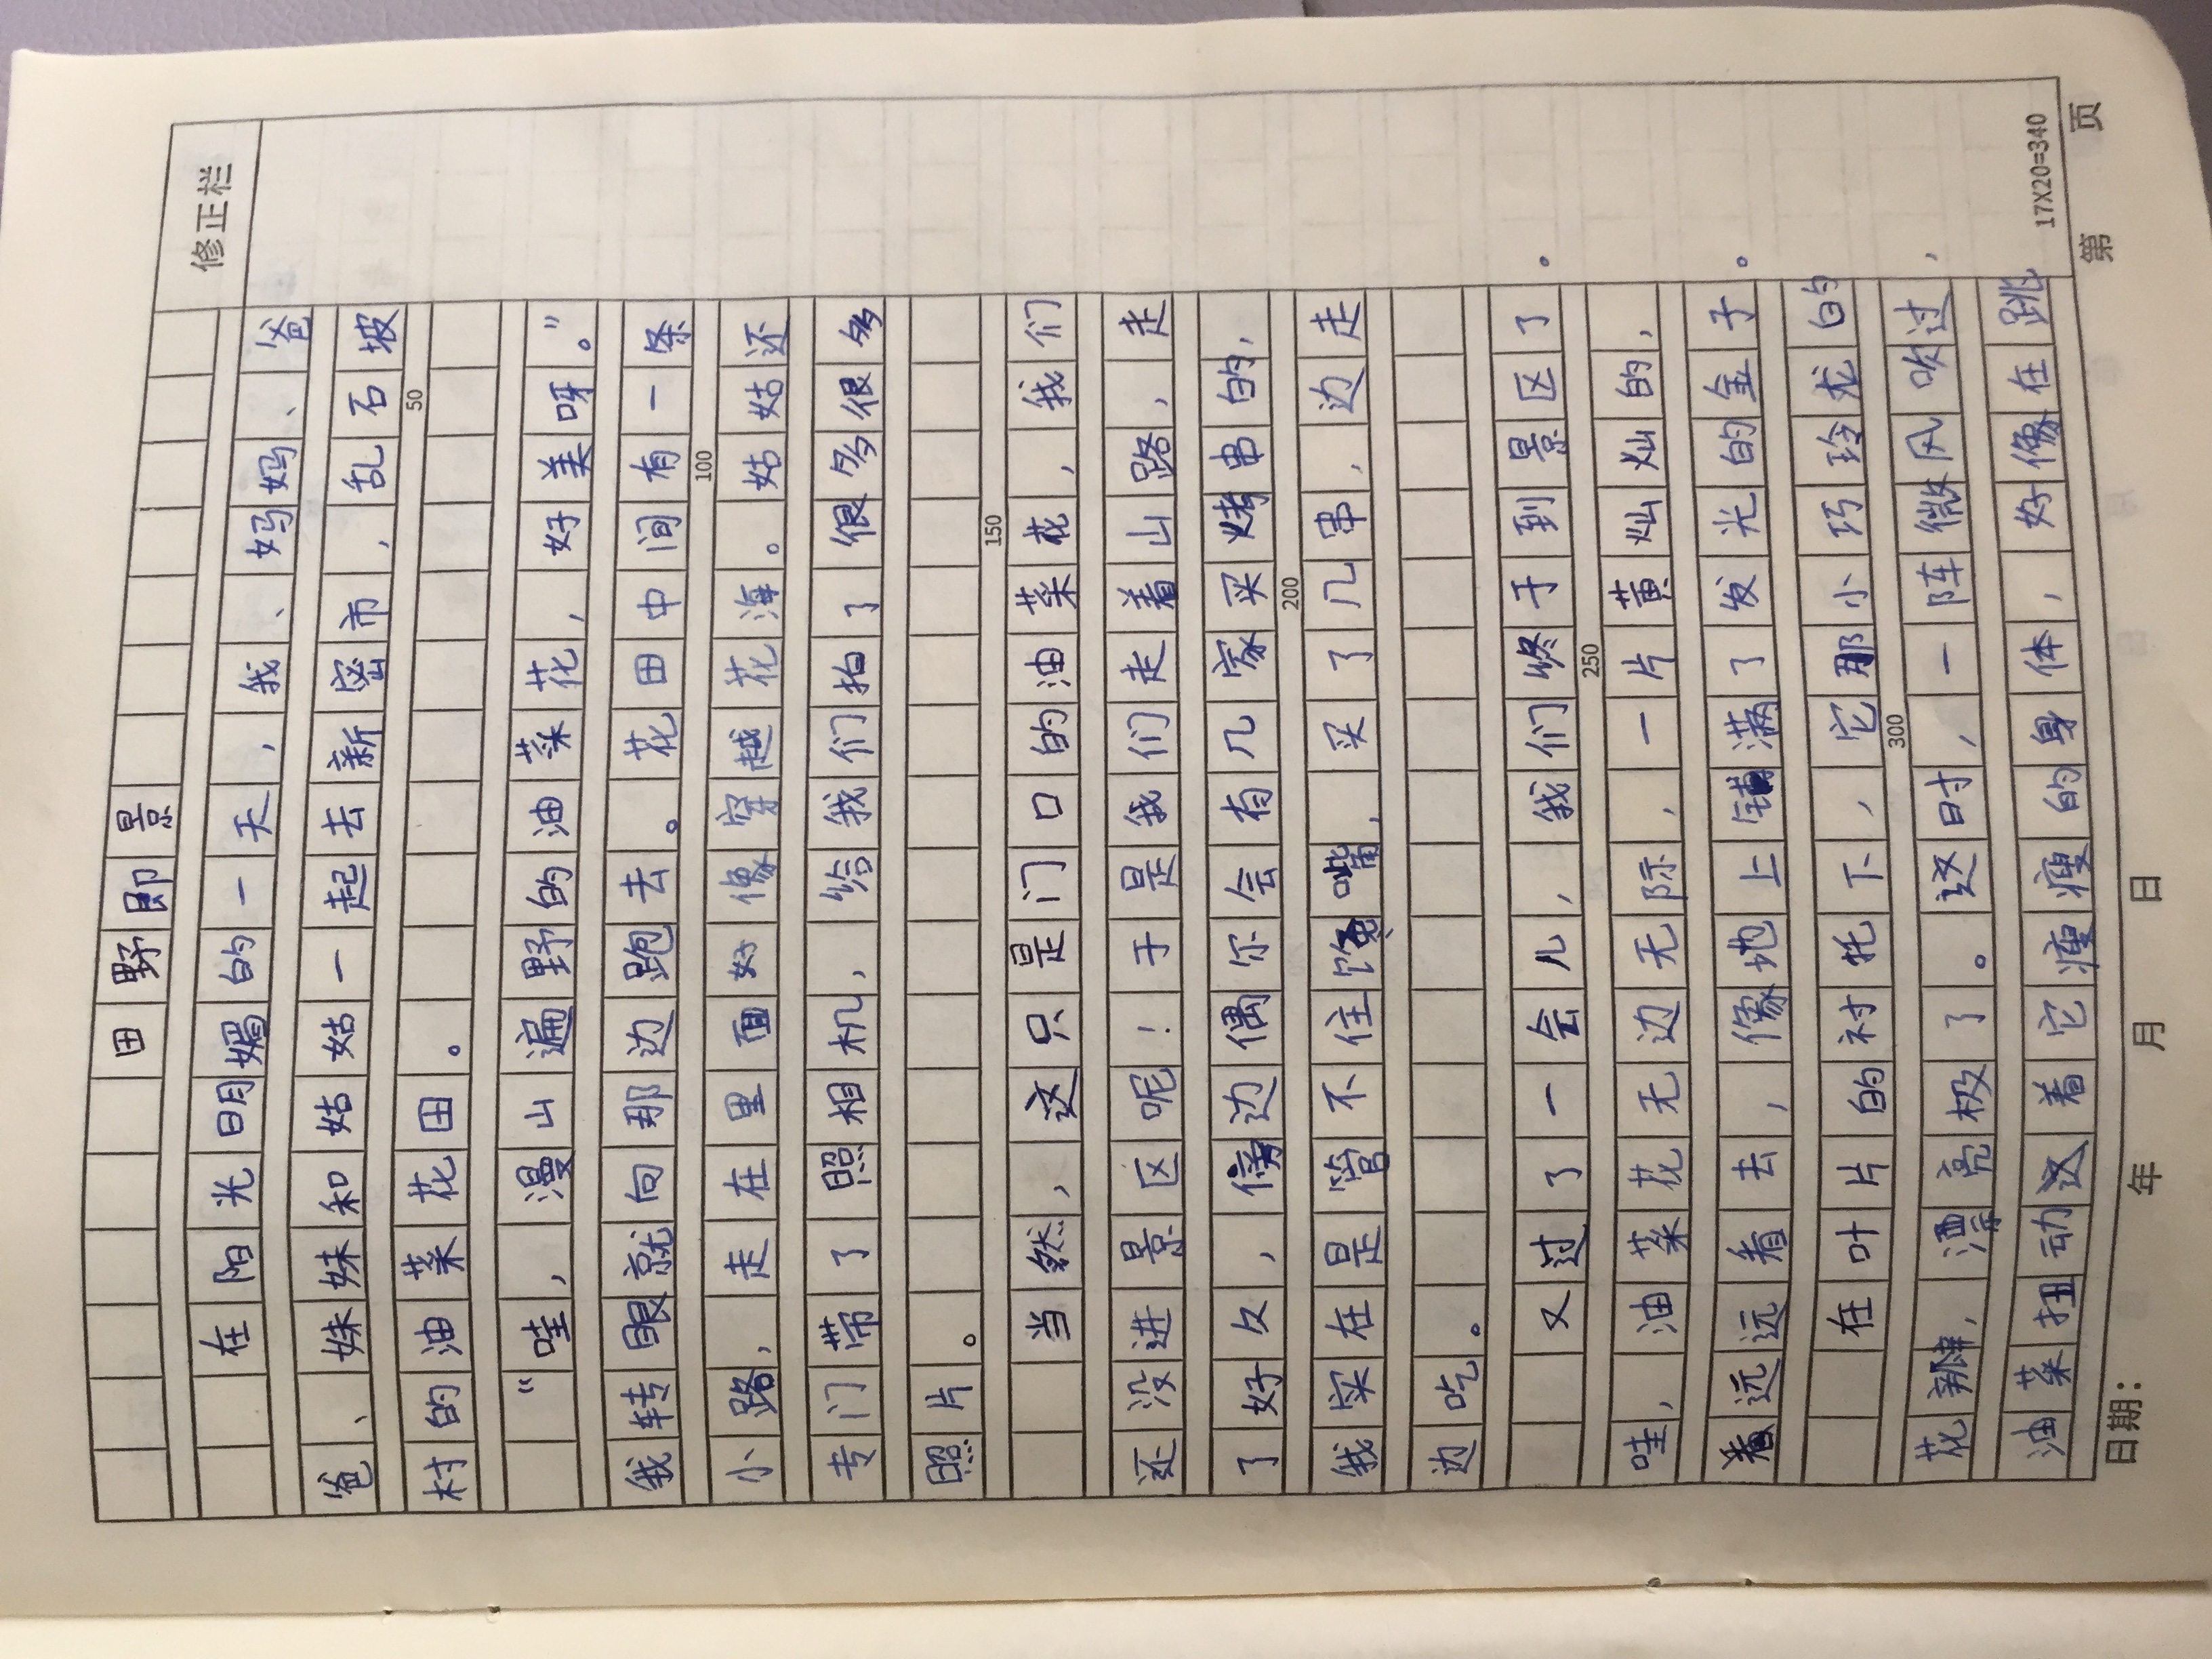 修正栏
田野即景
在阳光明媚的一天，我、妈妈、爸
爸、妹妹和姑姑一起去新密市，乱石坡
村的油菜花田。
50
“哇，漫山遍野的油菜花，好美呀。”
我转眼就向那边跑去。花田中间有一条
100
小路，走在里面好像穿越花海。姑姑还
专门带了照相机，给我们拍了很多很多
照片。
150
当然，这只是门口的油菜花，我们
还没进景区呢！于是我们走着山路，走
了好久，傍边偶尔会有几家买烤串的，
200
我实在是管不住馋嘴，买了几串，边走
边吃。
又过了一会儿，我们终于到景区了。
250
哇，油菜花无边无际，一片黄灿灿的，
看远远看去，像地上铺满了发光的金子。
在叶片的衬托下，它那小巧玲龙的
300
花瓣，漂亮极了。这时，一阵微风吹过，
油菜扭动这着它瘦瘦的身体，好像在跳
17X20=340
日期： 年 月 日 第 页